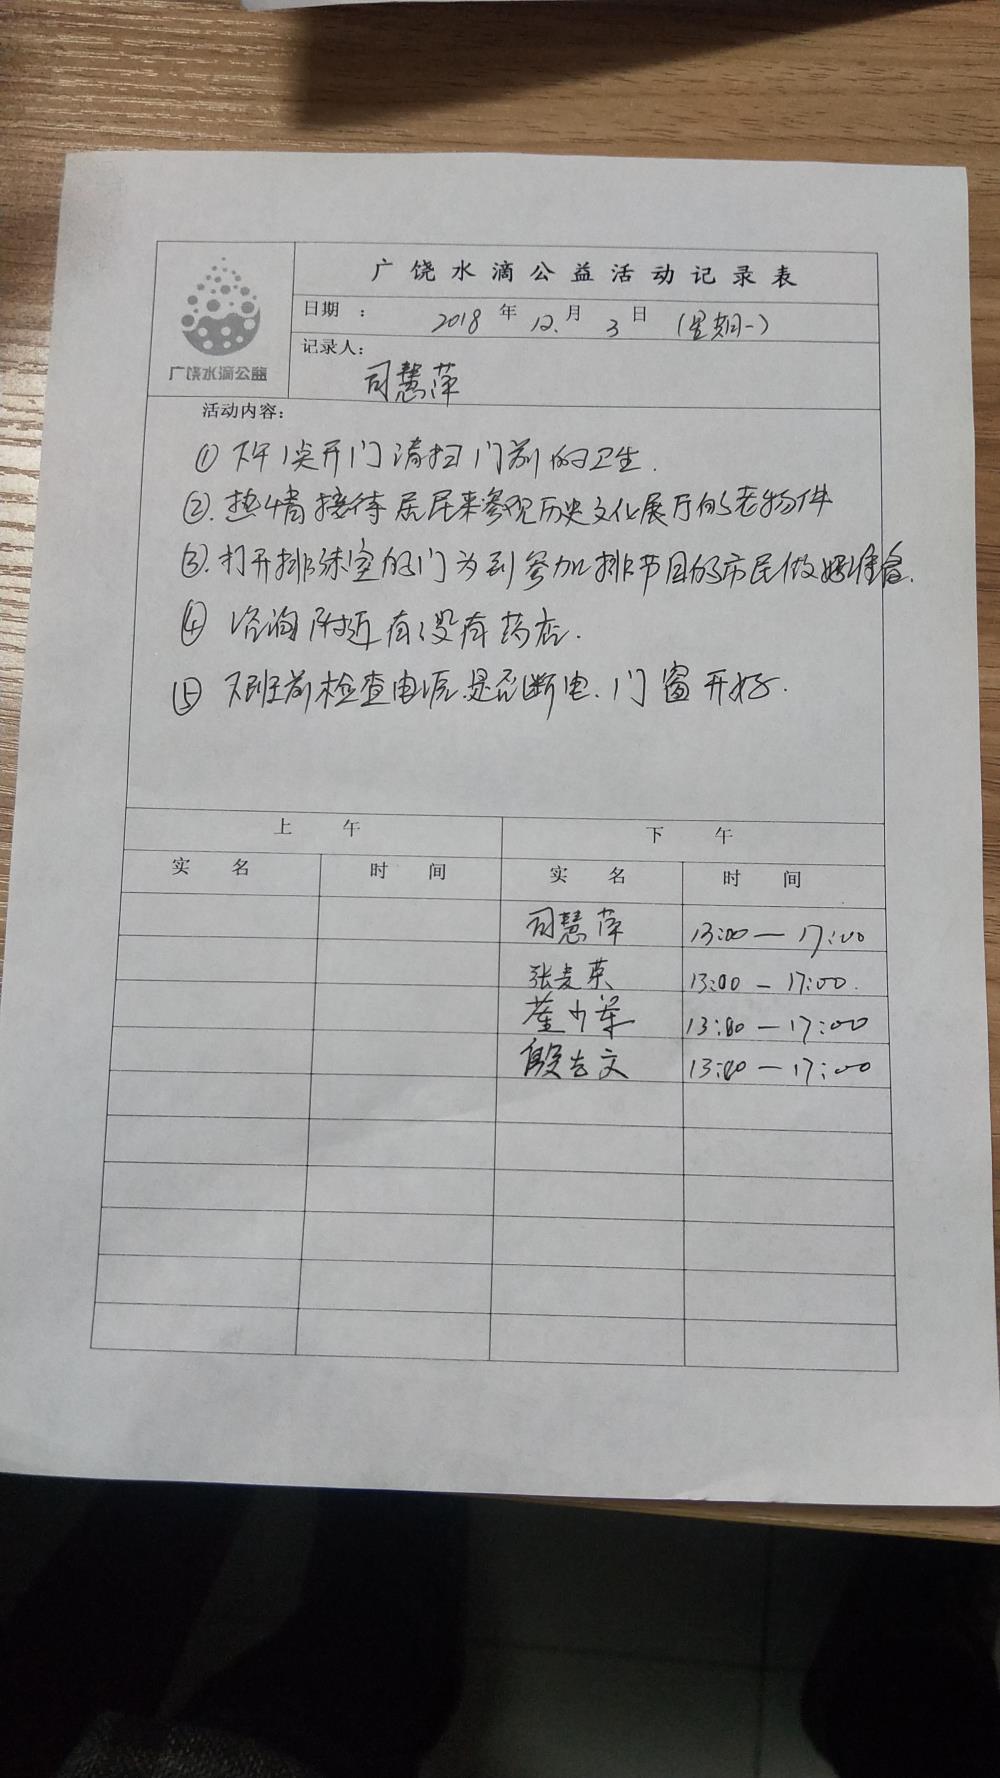 广饶水滴公益活动记录表
日期 : 2018 年 12. 月 3 日 (星期一)
广饶水滴公益
记录人: 司慧萍
活动内容:
① 下午1点开门清扫门前的卫生.
②. 热情接待居民来参观历史文化展厅的老物件
③. 打开排练室的门为到参加排节目的市民做好准备.
④ 咨询附近有没有药店.
⑤ 下班前检查电源.是否断电.门窗开好.
上 午 下 午
实 名 时 间 实 名 时 间
司慧萍 13:00 — 17:00
张麦英 13:00 — 17:00.
董少军 13:00 — 17:00
殷吉文 13:00 — 17:00